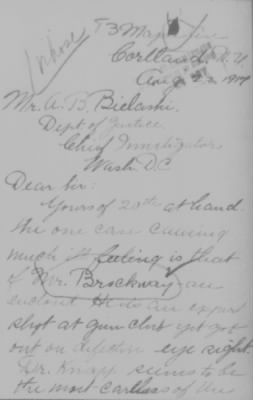 53 Maple Ave
Cortland, N.Y.
Aug 22 1917
Mr. A. B. Bielaski.
Dept of Justice
Chief Investigator
Wash. D.C
Dear Sir:
Yours of 20th at hand.
the one case causing
much ill feeling is that
of Mr. Brockway an
He is an expert
shot at gun club yet got
out on defective eye sight.
Dr. Knapp seems to be
the most careless of the